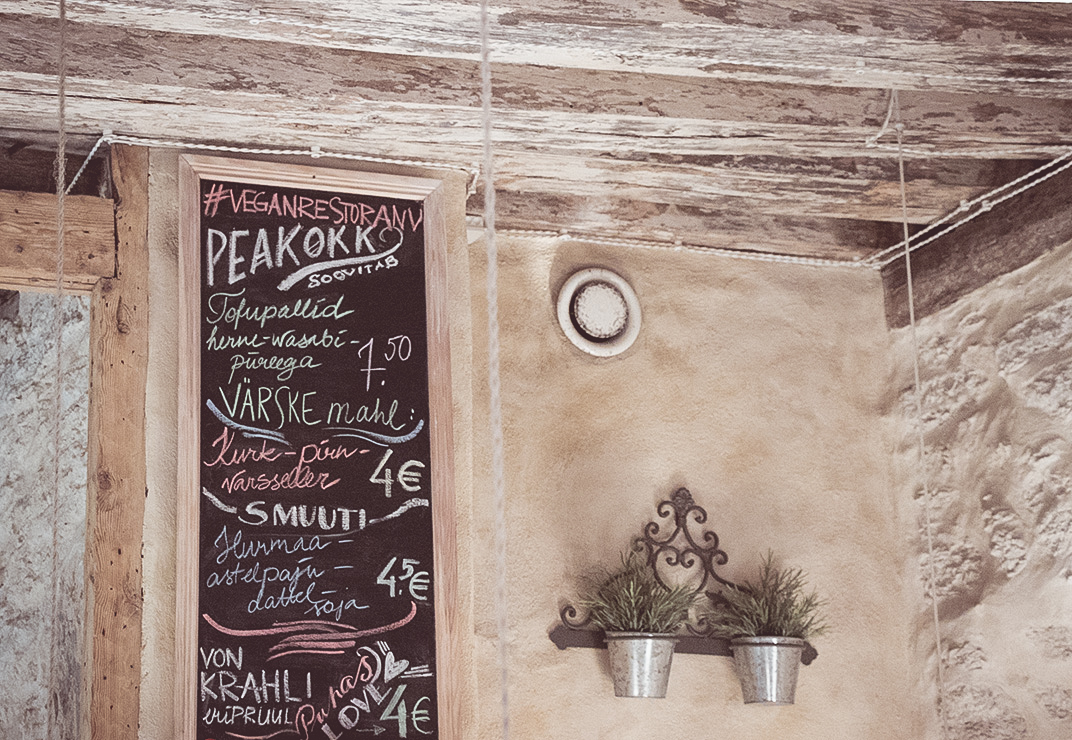 #VEGANRESTORANV
PEAKOKK
SOOVITAB
Tofupallid
herne-wasabi-
püreega
7.50
VÄRSKE mahl:
Kurk-pirn-
varsseller
4€
SMUUTI
Hurmaa-
astelpaju-
dattel-
soja
4.5€
VON
KRAHLI
VIIPRUUL
Pa pas)
LOVE
4€